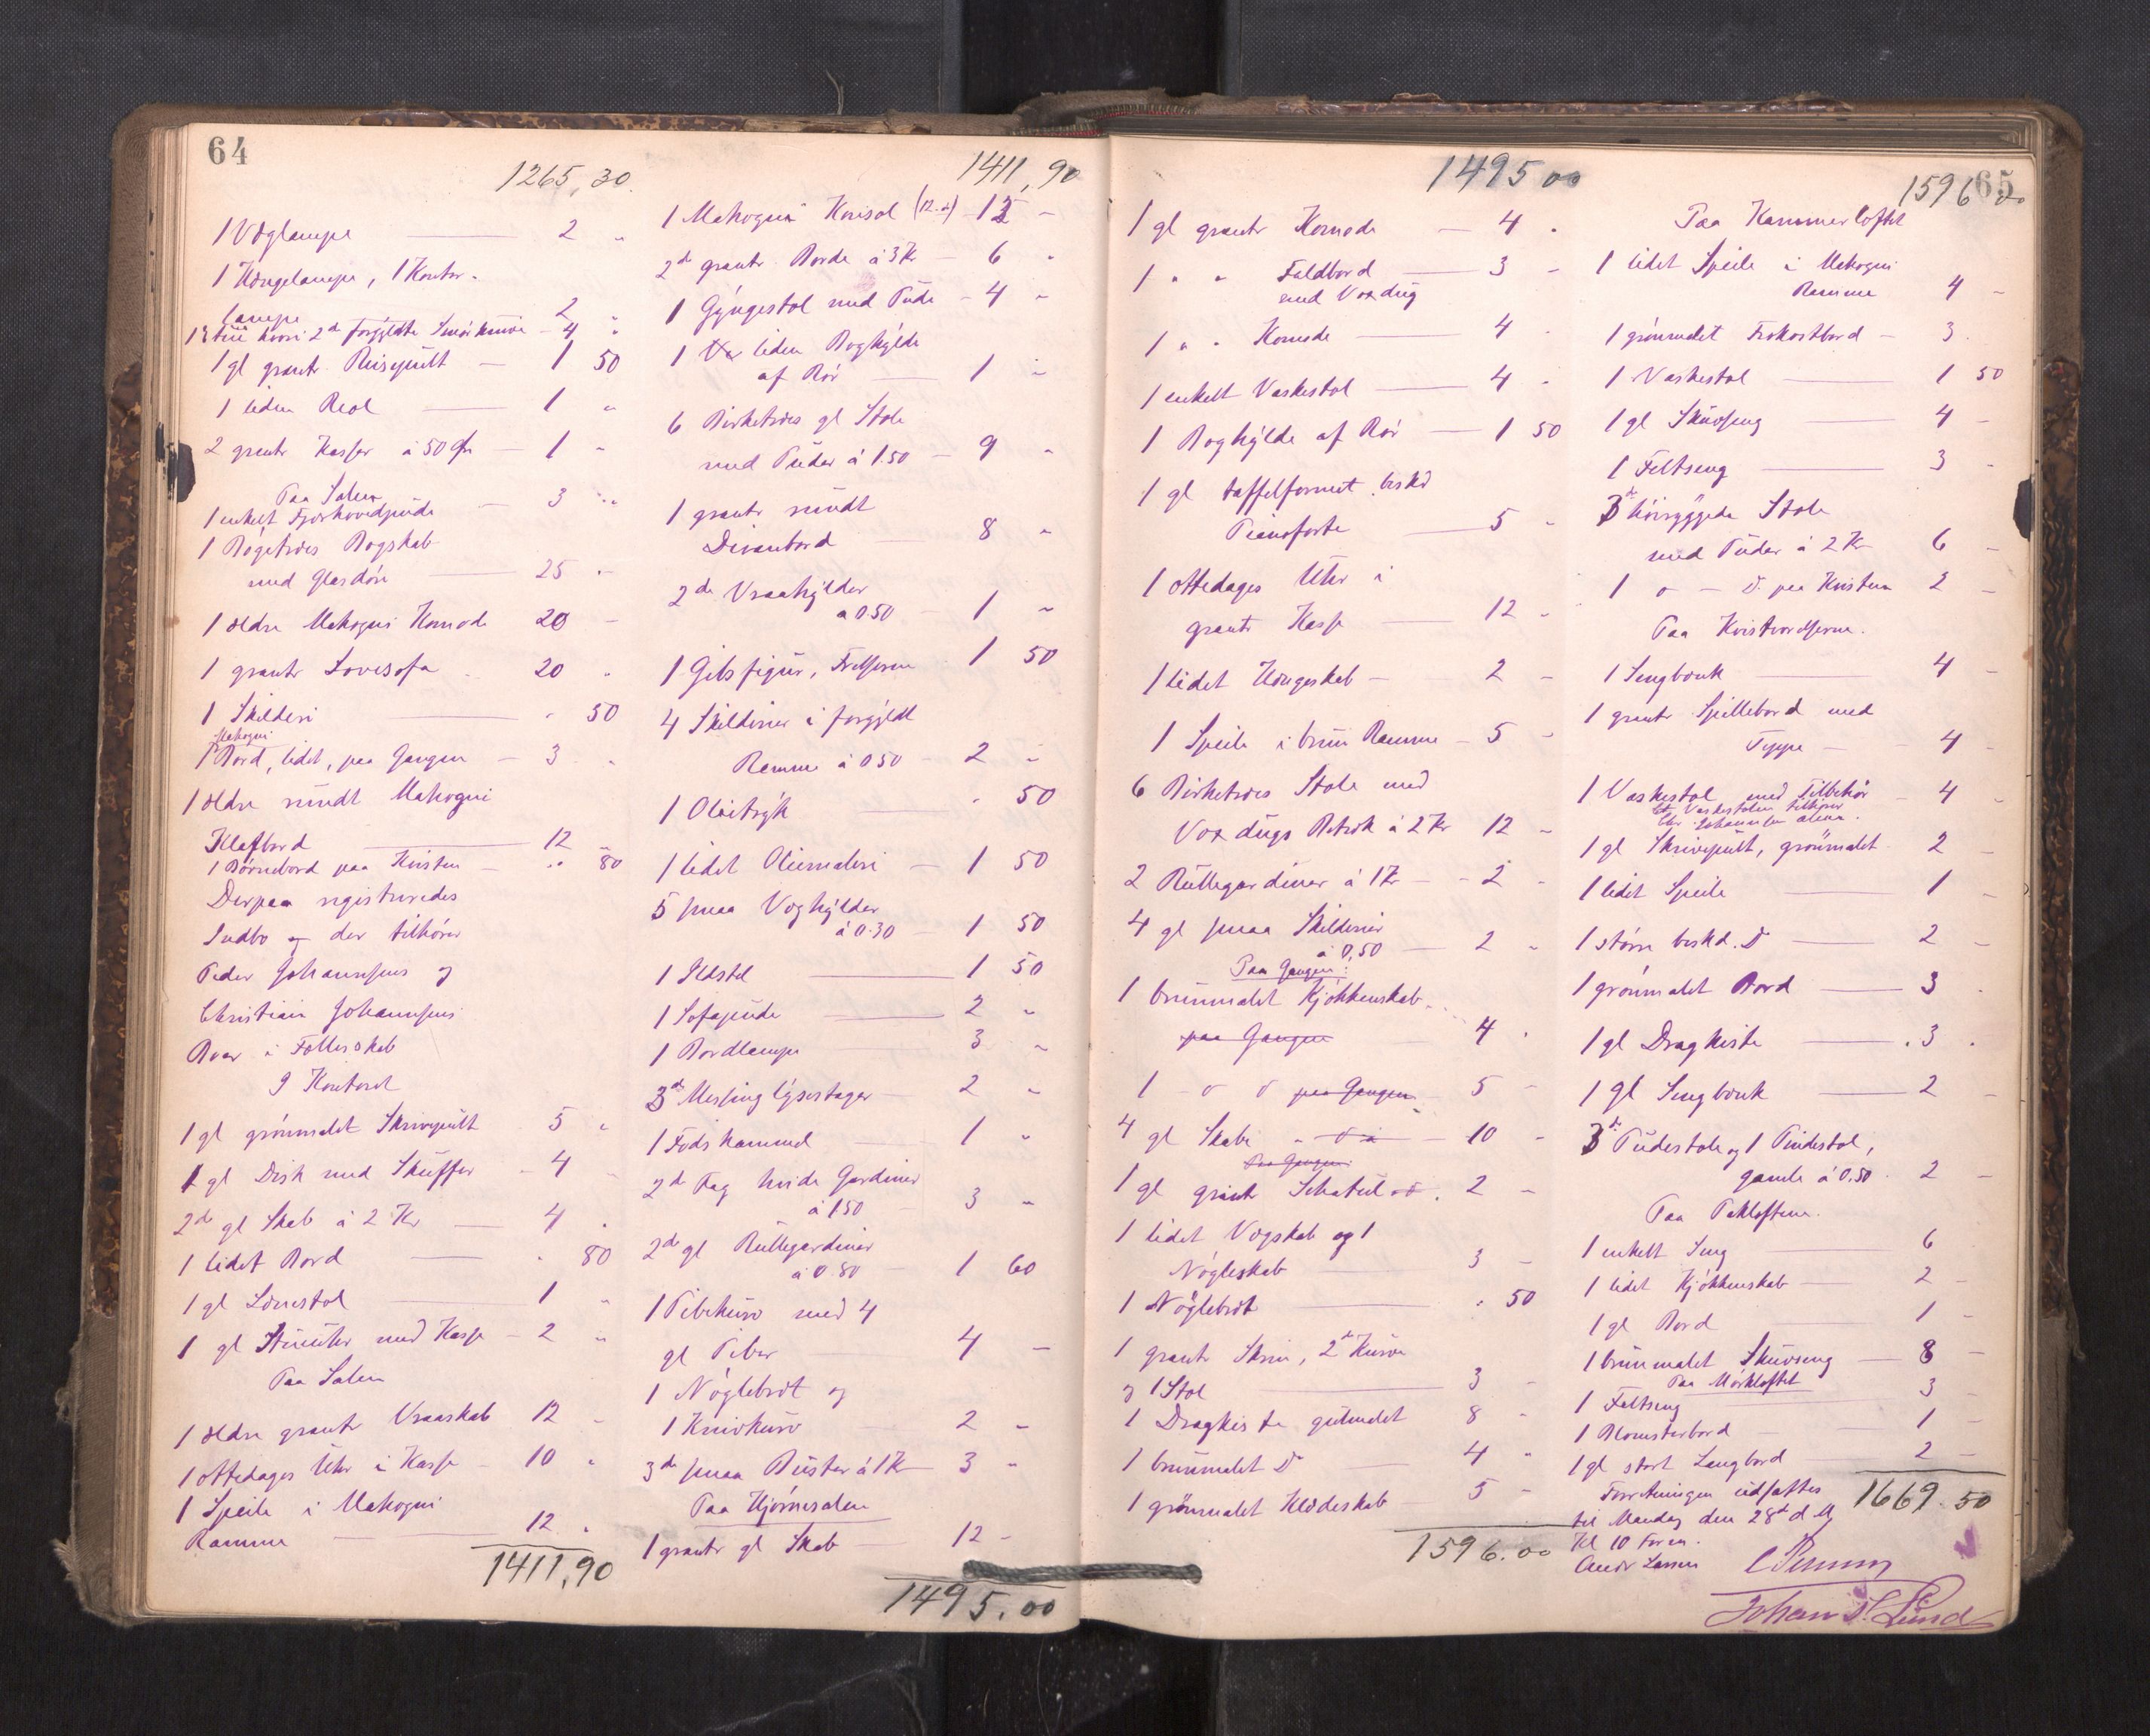 64
1265,30
1 Væglampe 2 "
1 Hængelampe, 1 Kontor-
lampe 2 "
2de forgyldte 4 "
1 gl grantr. Reisepult 1 50
1 liden Reol 1 "
2 grantr Kasser à 50 Øre 1 "
Paa Salen
1 enkelt Fjærhovedpude 3 "
1 Bøgetræes Bogskab
med Glasdøre 25 -
1 ældre Mahogni Komode 20 -
1 grantr Sovesofa 20 "
1 Skilderi " 50
Mahogni
1 Bord, lidet, paa Gangen 3 "
1 ældre rundt Mahogni
Klafbord 12
1 Børnebord paa Kvisten " 80
Derpaa registreredes
Indbo og der tilhører
Peder Johannessens og
Christian Johannessens
Boer i Fællesskab
I Kontoret
1 gl grönmalet Skrivepult 5 "
1 gl Disk med Skuffer 4
2de gl Skab à 2 Kr 4 "
1 lidet Bord " 80
1 gl Lænestol 1 "
1 gl Stueuhr med Kasse 2 "
Paa Salen
1 ældre grantr Vraaskab 12 -
1 ottedages Uhr i Kasse 10 "
1 Speile i Mahogni
Ramme 12 "
1411,90
1411,90
1 Mahogni Konsol 12 -
2de grantr. Borde à 3 Kr 6 "
1 Gyngestol med Pude 4 "
1 liden Boghylde
af Rör 1 "
6 Birketræes gl Stole
med Puder à 1.50 9 "
1 grantr rundt
Divanbord 8 "
2de Vraahylder
a 0 50 1 "
1 Gibsfigur, Frelseren 1 50
4 Skilderier i forgyldt
Ramme à 0 50 2 "
1 Olietryk " 50
1 lidet Oliemaleri 1 50
5 smaa Væghylder
à 0.30 1 50
1 Ildstol 1 50
1 Sofapude 2 "
1 Bordlampe 3 "
3de Messing lysestager 2 "
1 Fodskammel 1 "
2de Fag hvide Gardiner
à 1 50 3 "
2de gl Rullegardiner
à 0.80 1 60
1 Pibekurv med 4
gl Piber 4 -
1 Nöglebræt og
1 Knivkurv 2 -
3de smaa Buster à 1 Kr 3 "
Paa Hjörnesalen
1 grantr gl Skab 12 -
1495.00
1495 00
1 gl grantr Komode 4 "
1 " " Foldbord 3 -
med Voxdug
1 " " Komode 4 "
1 enkelt Vaskestol 4 "
1 Boghylde af Rör 1 50
1 gl taffelformet beskd
Pianoforte 5 -
1 ottedages Uhr i
grantr Kasse 12 -
1 lidet Hængeskab 2 -
1 Speile i brun Ramme 5 -
6 Birketræes Stole med
Voxdugs Betræk à 2 Kr 12 -
2 Rullegardiner à 1 Kr 2 -
4 gl smaa Skilderier
à 0,50 2 "
Paa Gangen:
1 brunmalet Kjökkenskab
paa Gangen 4 "
1 - o o paa Gangen 5 -
4 gl Skabe 10 -
Paa Gangen
1 gl grantr Schatul 2 -
1 lidet Vægskab og 1
Nögleskab 3 -
1 Nöglebræt " 50
1 grantr Skrin, 2de Kurve
og 1 Stol 3 -
1 Dragkiste gulmalet 8 -
1 brunmalet Do 4 "
1 grönmalet Klædeskab 5 -
1596.00
65
1596 00
Paa Kammerloftet
1 lidet Speile i Mahogni
Ramme 4 -
1 grönmalet Frokostbord 3 -
1 Vaskestol 1 50
1 gl Skuvseng 4 -
1 Feltseng 3 -
3de höiryggede Stole
med Puder à 2 Kr 6 -
1 o - Do paa Kvisten 2 -
Paa Kvistværelserne.
1 Sengbænk 4 -
1 grantr Spillebord med
Tæppe 4 -
1 Vaskestol med Tilbehör 4 -
Vaskestolen tilhører
Chr. Johannessen alene.
1 gl Skrivepult, grönmalet 2 -
1 lidet Speile 1 -
1 större beskd. Do 2 -
1 grönmalet Bord 3 "
1 gl Dragkiste 3 "
1 gl Sengbænk 2 -
3de Pudestole og 1 Pindestol,
gamle à 0.50 2 -
Paa Takloftene.
1 enkelt Seng 6
1 lidet Kjökkenskab 2 -
1 gl Bord 1 -
1 brunmalet Skuvseng 8 -
Paa Mörkloftet
1 Feltseng 3 -
1 Blomsterbord 1 -
1 gl stort Langbord 2 -
Forretningen udsattes 1669.50
til Mandag den 28de d. M.
Kl 10 Form.
Andr Larsen
Johan S. Lund